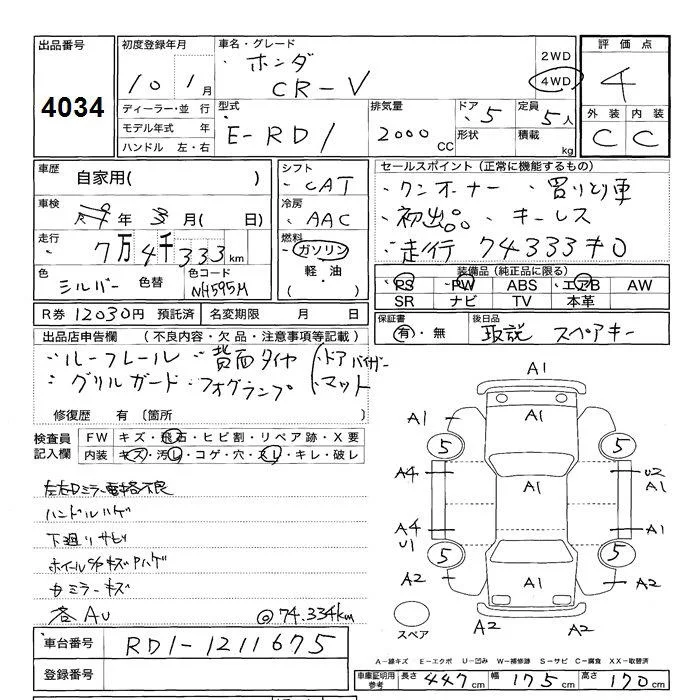 出品番号
4034
初度登録年月
10 1月
ディーラー・並 行
モデル年式 年
ハンドル 左・右
車名・グレード
ホンダ
CR-V
2WD
4WD
型式
E-RD1
排気量
2000 CC
ドア
5
形状
定員
5人
積載
kg
評価点
4
外装 内装
C C
車歴
自家用( )
車検
年 3月( 日)
走行
7万4千333km
色
シルバー
色替
色コード
NH595M
シフト
CAT
冷房
AAC
燃料
ガソリン
軽・油
( )
セールスポイント(正常に機能するもの)
・ワンオーナー ・買いとり車
・初出品 ・キーレス
・走行 74333キロ
装備品(純正品に限る)
PS PW ABS エアB AW
SR ナビ TV 本革
R券 12030円 預託済
名変期限 月 日
保証書
有・無
後日品
取説 スペアキー
出品店申告欄 (不良内容・欠品・注意事項等記載)
・ルーフレール ・背面タイヤ ・ドアバイザー
・グリルガード ・フォグランプ ・マット
修復歴 有〔箇所 〕
検査員
記入欄
FW キズ・飛石・ヒビ割・リペア跡・X要
内装 キズ・汚レ・コゲ・穴・スレ・キレ・破レ
ハンドルハゲ
下廻りサビ
カミラーキズ
各AU
◎74.334km
A1
A1 A1 A1
5 5
A4 A1 U2
A1
A4 A1
U1
5 5
A2 A1 A2
A2 A2
スペア
A-線キズ E-エクボ U-凹み W-補修跡 S-サビ C-腐食 XX-取替済
車台番号
RD1-1211675
登録番号
車庫証明用
参考
長さ 447cm 幅 175cm 高さ 170cm